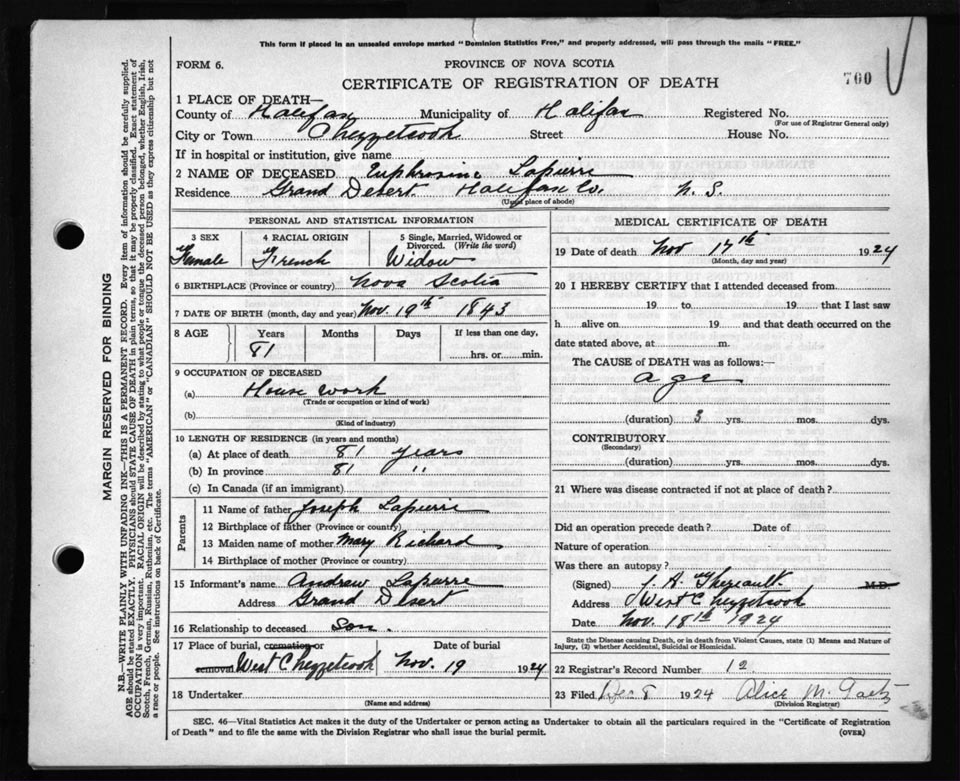 This form if placed in an unsealed envelope marked "Dominion Statistics Free," and properly addressed, will pass through the mails "FREE."
FORM 6.
PROVINCE OF NOVA SCOTIA
CERTIFICATE OF REGISTRATION OF DEATH
700
1 PLACE OF DEATH—
County of Halifax Municipality of Halifax Registered No.
(For use of Registrar General only)
City or Town Chezzetcook Street House No.
If in hospital or institution, give name
2 NAME OF DECEASED Euphrosine Lapierre
Residence Grand Desert Halifax Co. N. S.
(Usual place of abode)
PERSONAL AND STATISTICAL INFORMATION
3 SEX 4 RACIAL ORIGIN 5 Single, Married, Widowed or Divorced. (Write the word)
Female French Widow
6 BIRTHPLACE (Province or country) Nova Scotia
7 DATE OF BIRTH (month, day and year) Nov. 19th 1843
8 AGE Years Months Days If less than one day,
81 hrs. or min.
9 OCCUPATION OF DECEASED
(a) House work
(Trade or occupation or kind of work)
(b)
(Kind of industry)
10 LENGTH OF RESIDENCE (in years and months)
(a) At place of death 81 years
(b) In province 81 "
(c) In Canada (if an immigrant)
Parents
11 Name of father Joseph Lapierre
12 Birthplace of father (Province or country)
13 Maiden name of mother Mary Richard
14 Birthplace of mother (Province or country)
15 Informant's name Andrew Lapierre
Address Grand Desert
16 Relationship to deceased Son.
17 Place of burial, cremation or Date of burial
removal West Chezzetcook Nov. 19 1924
18 Undertaker
(Name and address)
MEDICAL CERTIFICATE OF DEATH
19 Date of death Nov 17th 1924
(Month, day and year)
20 I HEREBY CERTIFY that I attended deceased from
19 to 19 that I last saw
h alive on 19 and that death occurred on the
date stated above, at m.
The CAUSE of DEATH was as follows:—
age
(duration) 3 yrs. mos. dys.
CONTRIBUTORY
(Secondary)
(duration) yrs. mos. dys.
21 Where was disease contracted if not at place of death?
Did an operation precede death? Date of
Nature of operation
Was there an autopsy?
(Signed) Theriault M.D.
Address West Chezzetcook
Date Nov. 18th 1924
State the Disease causing Death, or in death from Violent Causes, state (1) Means and Nature of Injury, (2) whether Accidental, Suicidal or Homicidal.
22 Registrar's Record Number 12
23 Filed Dec 8 1924 Alice M. Gaetz
(Division Registrar)
SEC. 46—Vital Statistics Act makes it the duty of the Undertaker or person acting as Undertaker to obtain all the particulars required in the "Certificate of Registration
of Death" and to file the same with the Division Registrar who shall issue the burial permit. (OVER)
MARGIN RESERVED FOR BINDING
N.B.—WRITE PLAINLY WITH UNFADING INK—THIS IS A PERMANENT RECORD. Every item of information should be carefully supplied.
AGE should be stated EXACTLY. PHYSICIANS should STATE CAUSE OF DEATH in plain terms, so that it may be properly classified. Exact statement of
OCCUPATION is very important. RACIAL ORIGIN will be described by stating to what people or tongue the deceased person belonged, whether English, Irish,
Scotch, French, German, Russian, Ruthenian, etc. The terms "AMERICAN" or "CANADIAN" SHOULD NOT BE USED as they express citizenship but not
a race or people. See instructions on back of Certificate.